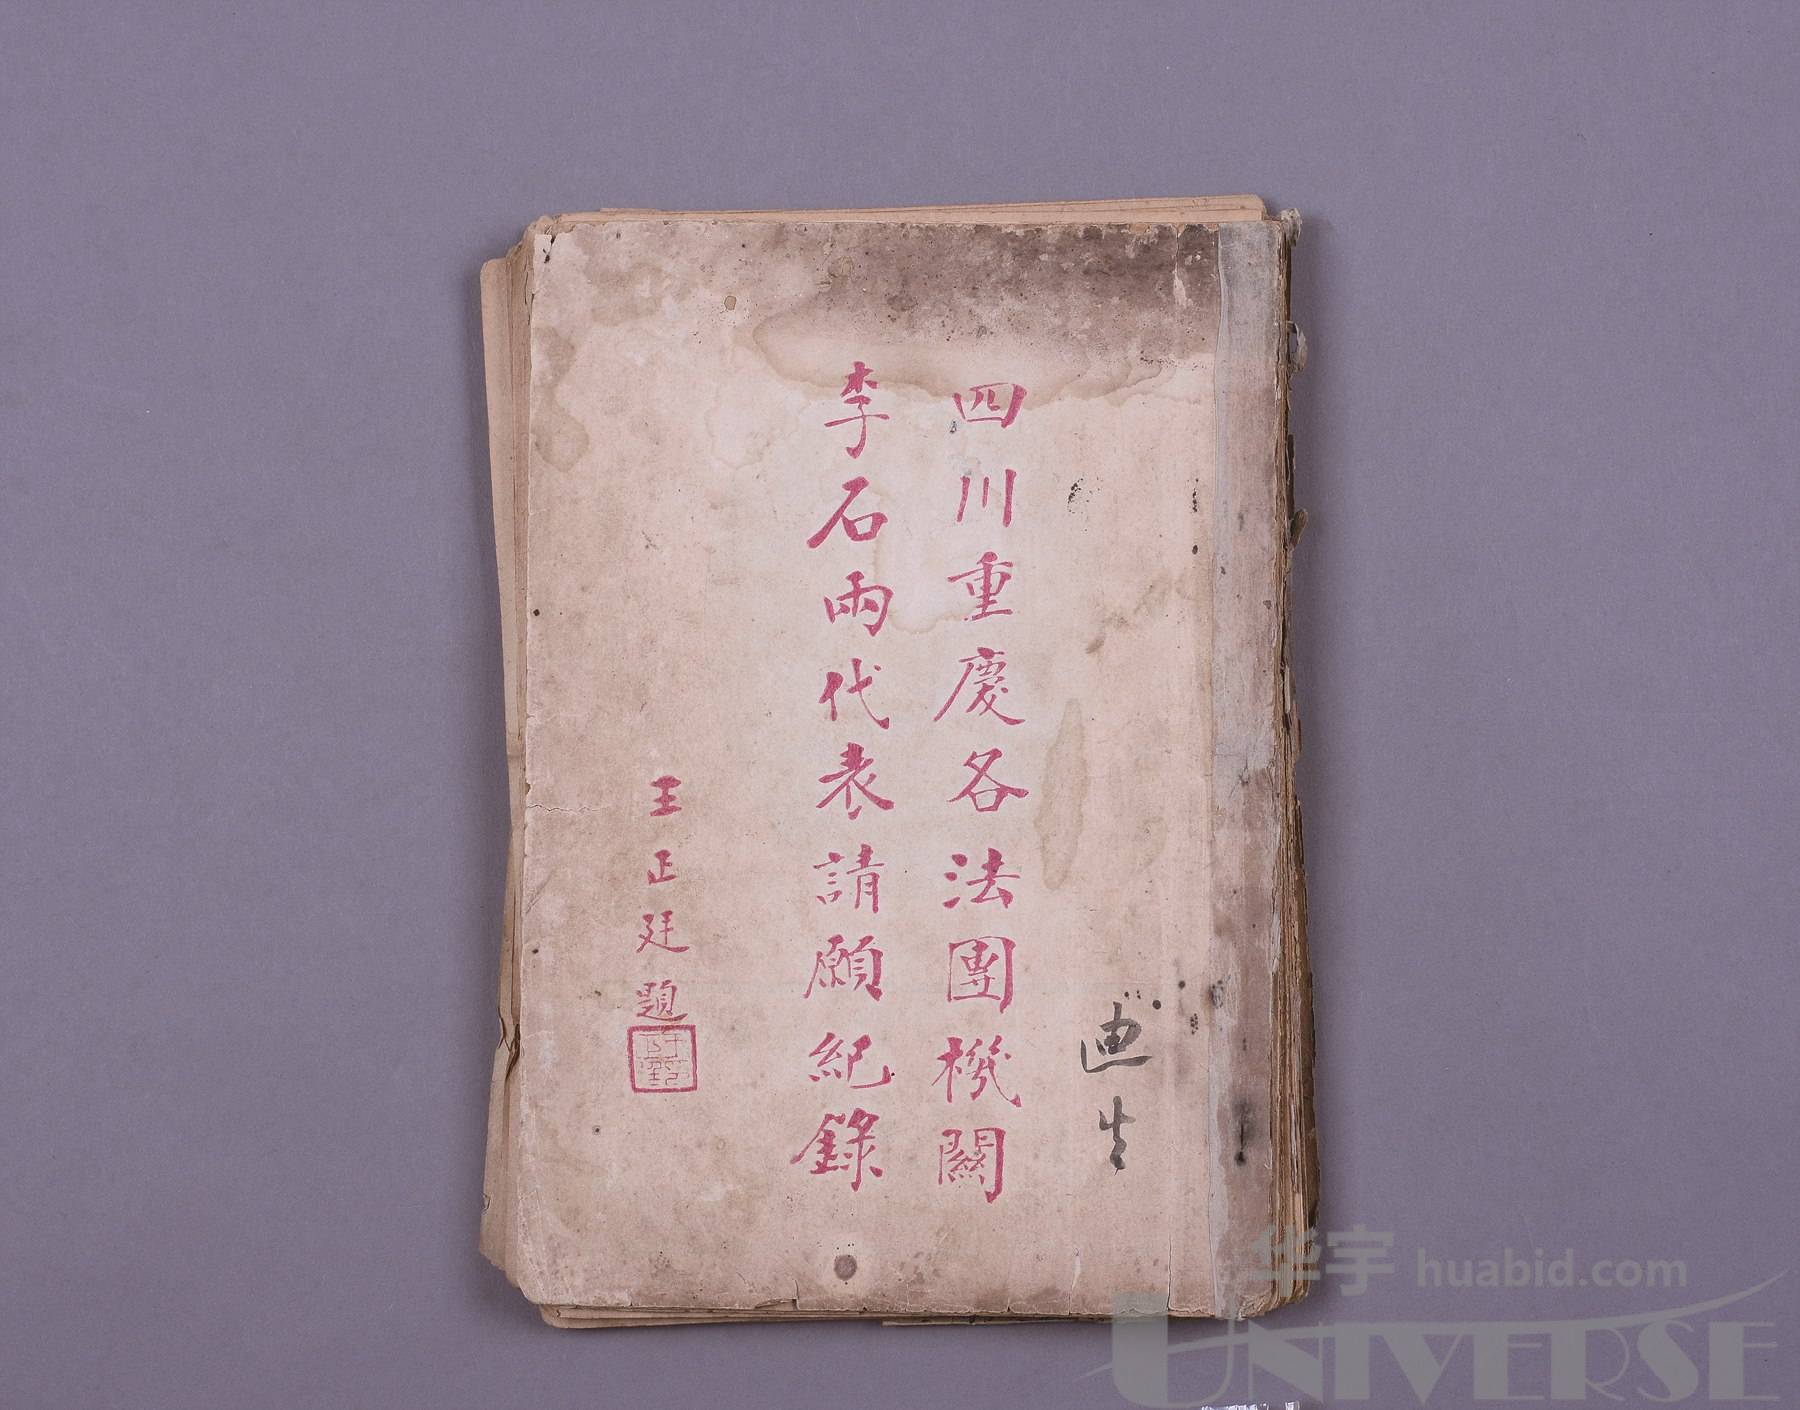 四川重慶各法團機關
李石兩代表請願紀錄
王正廷題
华宇 huabid.com
UNIVERSE